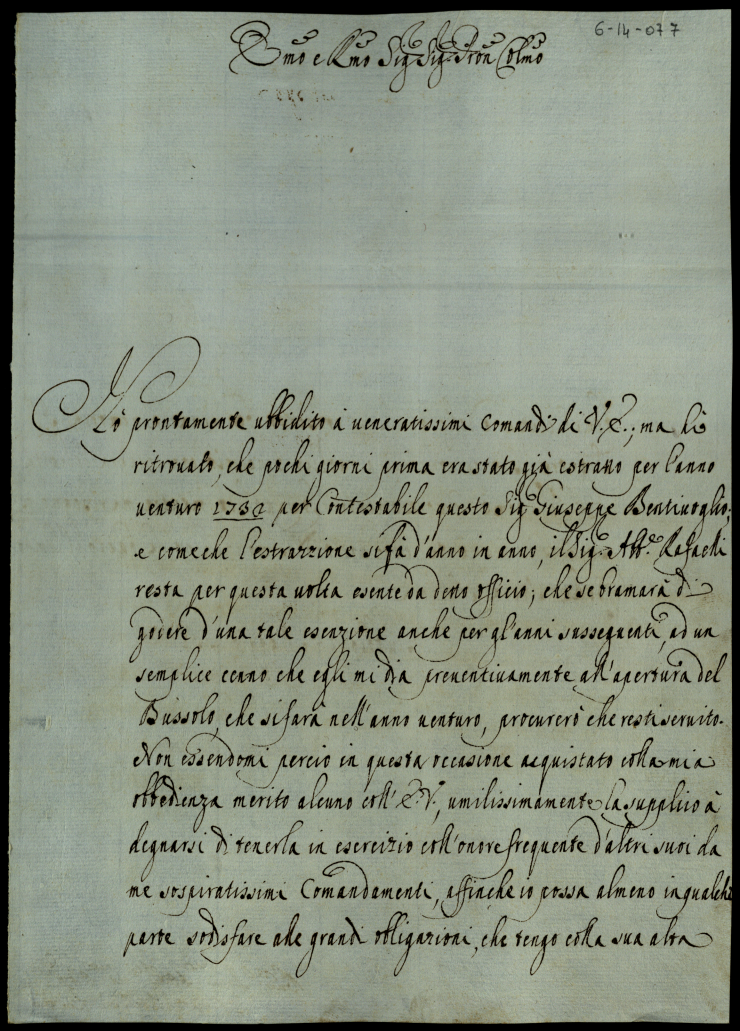 6-14-077
Emo e Rmo Sig Sig Pron Colmo
Hò prontamente ubbidito à ueneratissimi Comandi di V. E.; ma hò
ritrouato, che pochi giorni prima era stato già estratto per l'anno
uenturo 1732 per Contestabile questo Sig.r Giuseppe Bentiuoglio;
e come che l'estrazzione si fà d'anno in anno, il Sig.r Abb.e Rafaelli
resta per questa uolta esente da detto officio; che se bramarà di
godere d'una tale esenzione anche per gl'anni susseguenti, ad un
semplice cenno che egli mi dia preuentiuamente all'apertura del
Bussolo, che si farà nell'anno uenturo, procurerò che resti seruito.
Non essendomi perciò in questa occasione acquistato colla mia
obbedienza merito alcuno coll'E. V., umilissimamente la supplico à
degnarsi di tenerla in esercizio coll'onore frequente d'altri suoi da
me sospiratissimi Comandamenti, affinche io possa almeno in qualche
parte sodisfare alle grandi obligazioni, che tengo colla sua alta